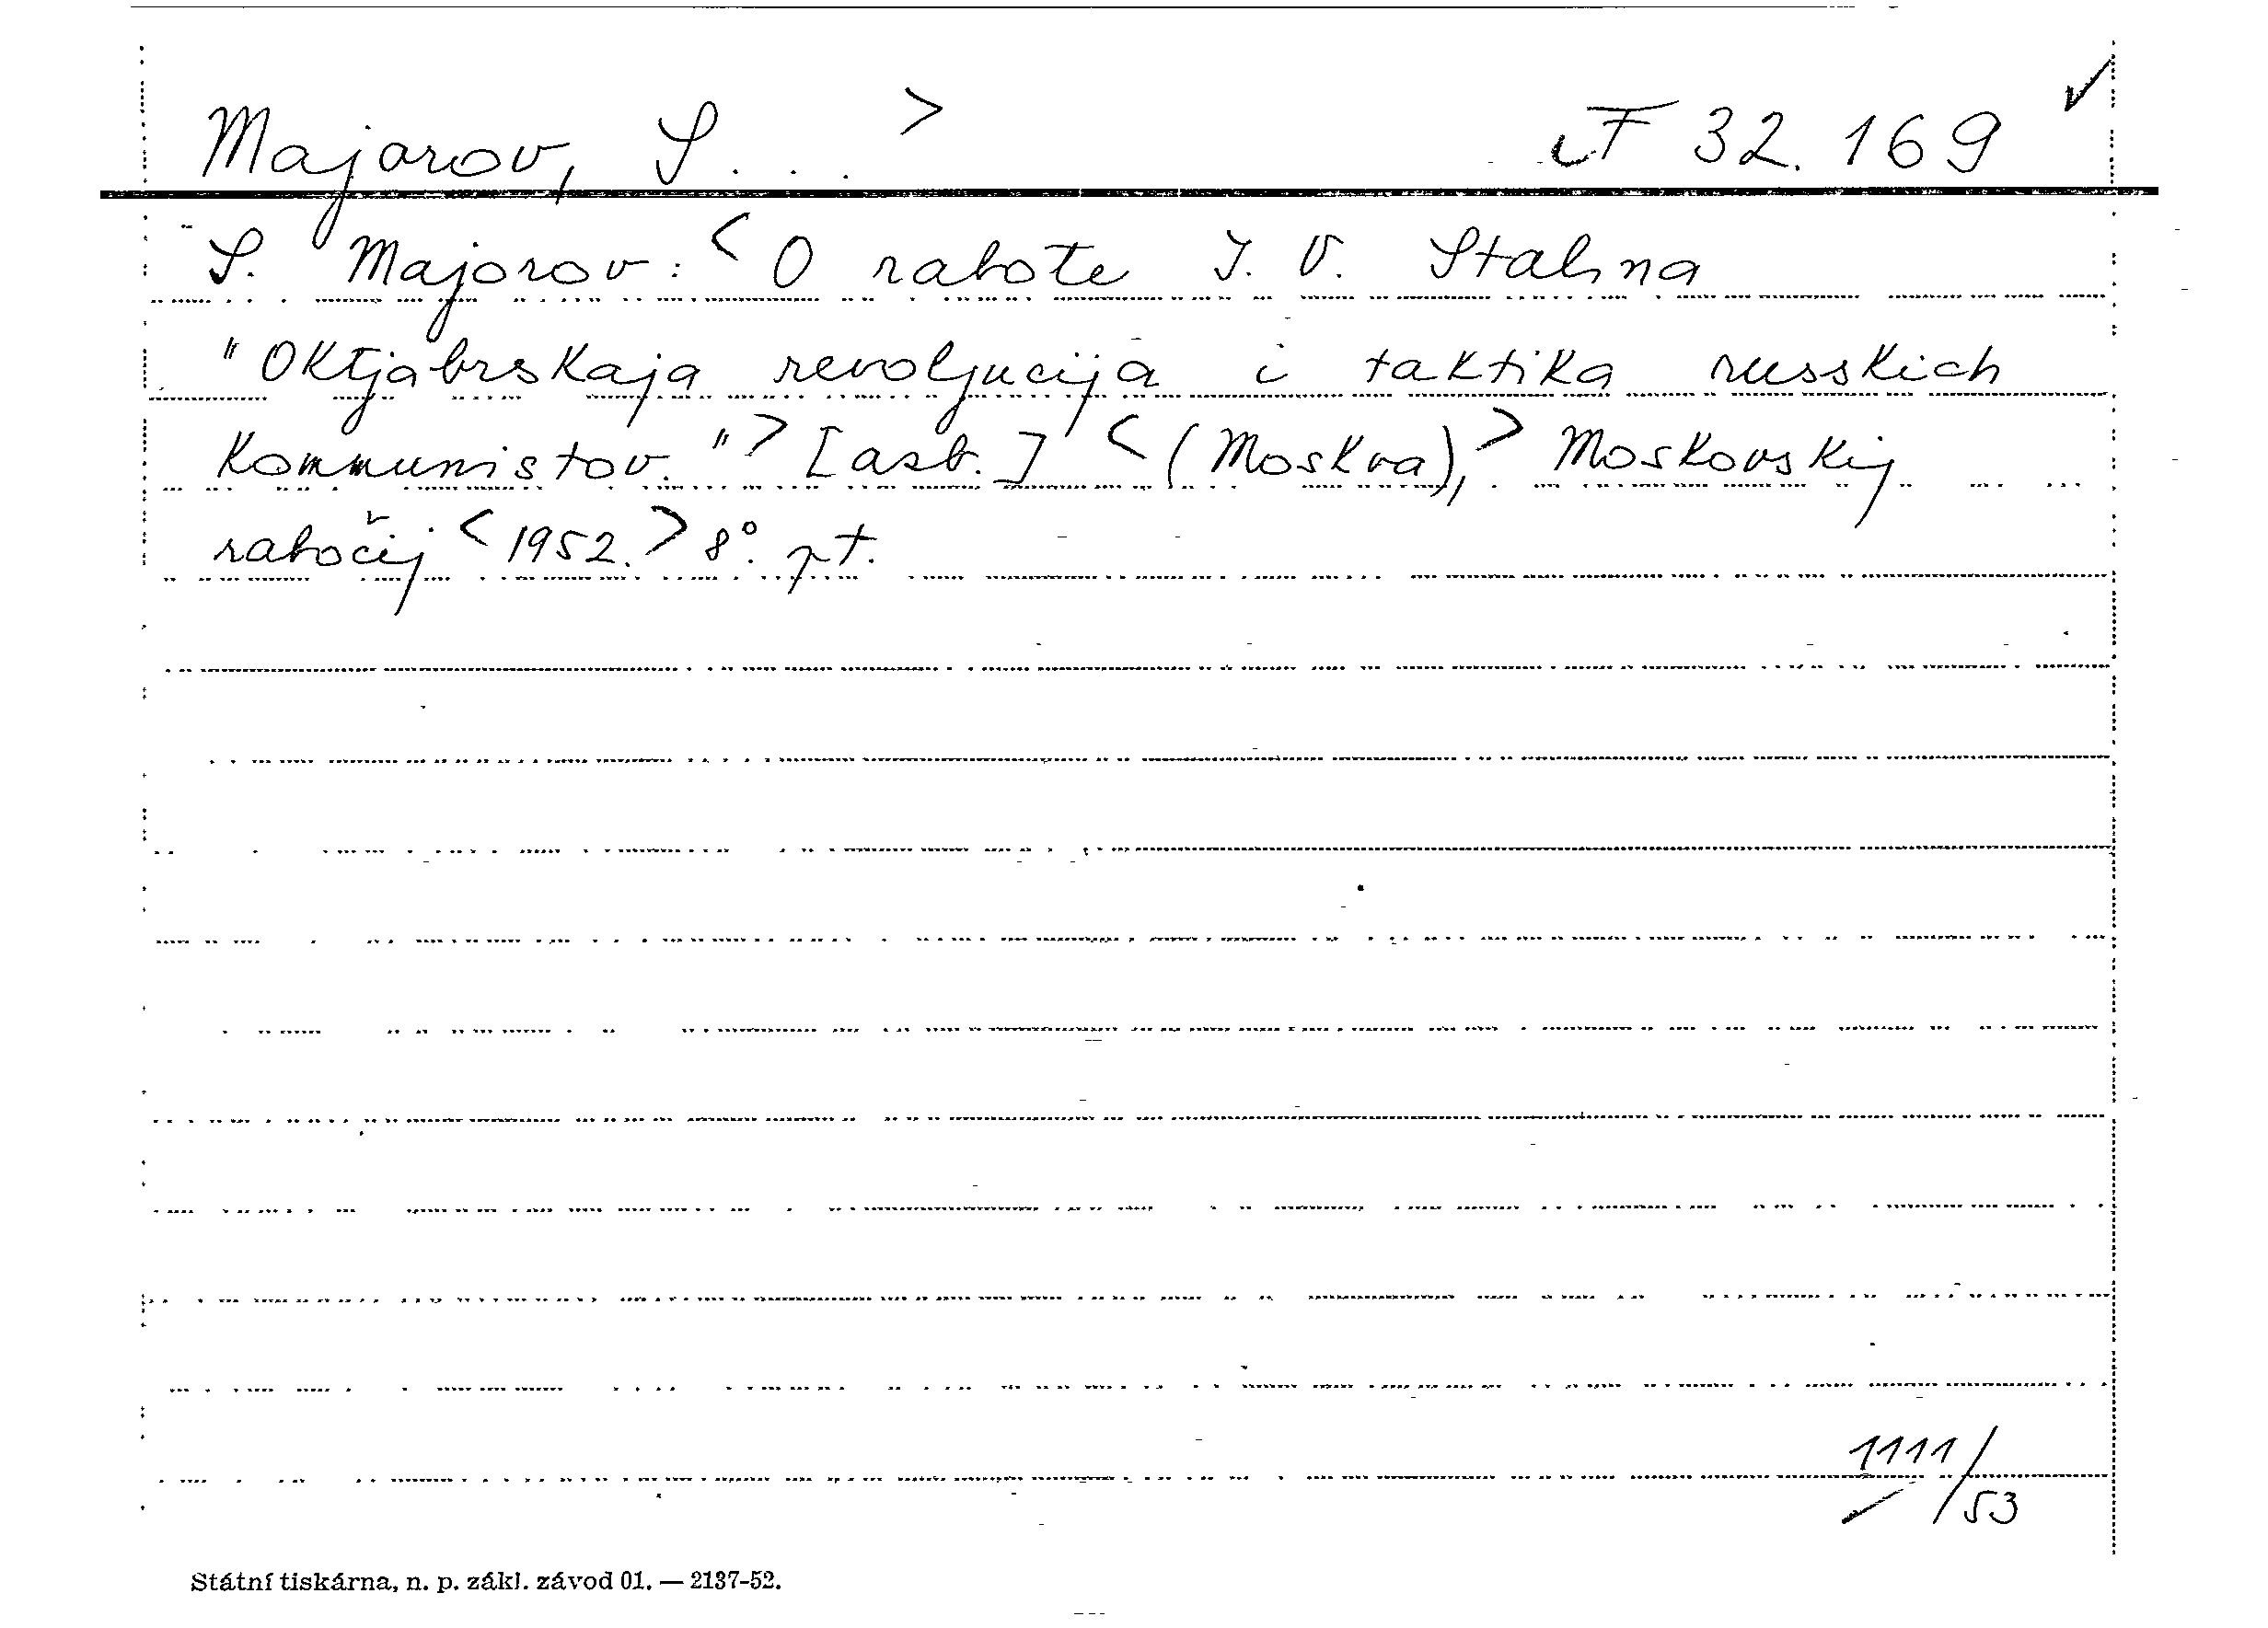 Majorov, S. . . > F 32.169 ✓
S. Majorov: < O rabote I. V. Stalina
"Oktjabrskaja revoljucija i taktika russkich
kommunistov." > [azb.] < (Moskva), > Moskovskij
rabočij < 1952. > 8°. pt.
1111/53
Státní tiskárna, n. p. zákl. závod 01. — 2137-52.